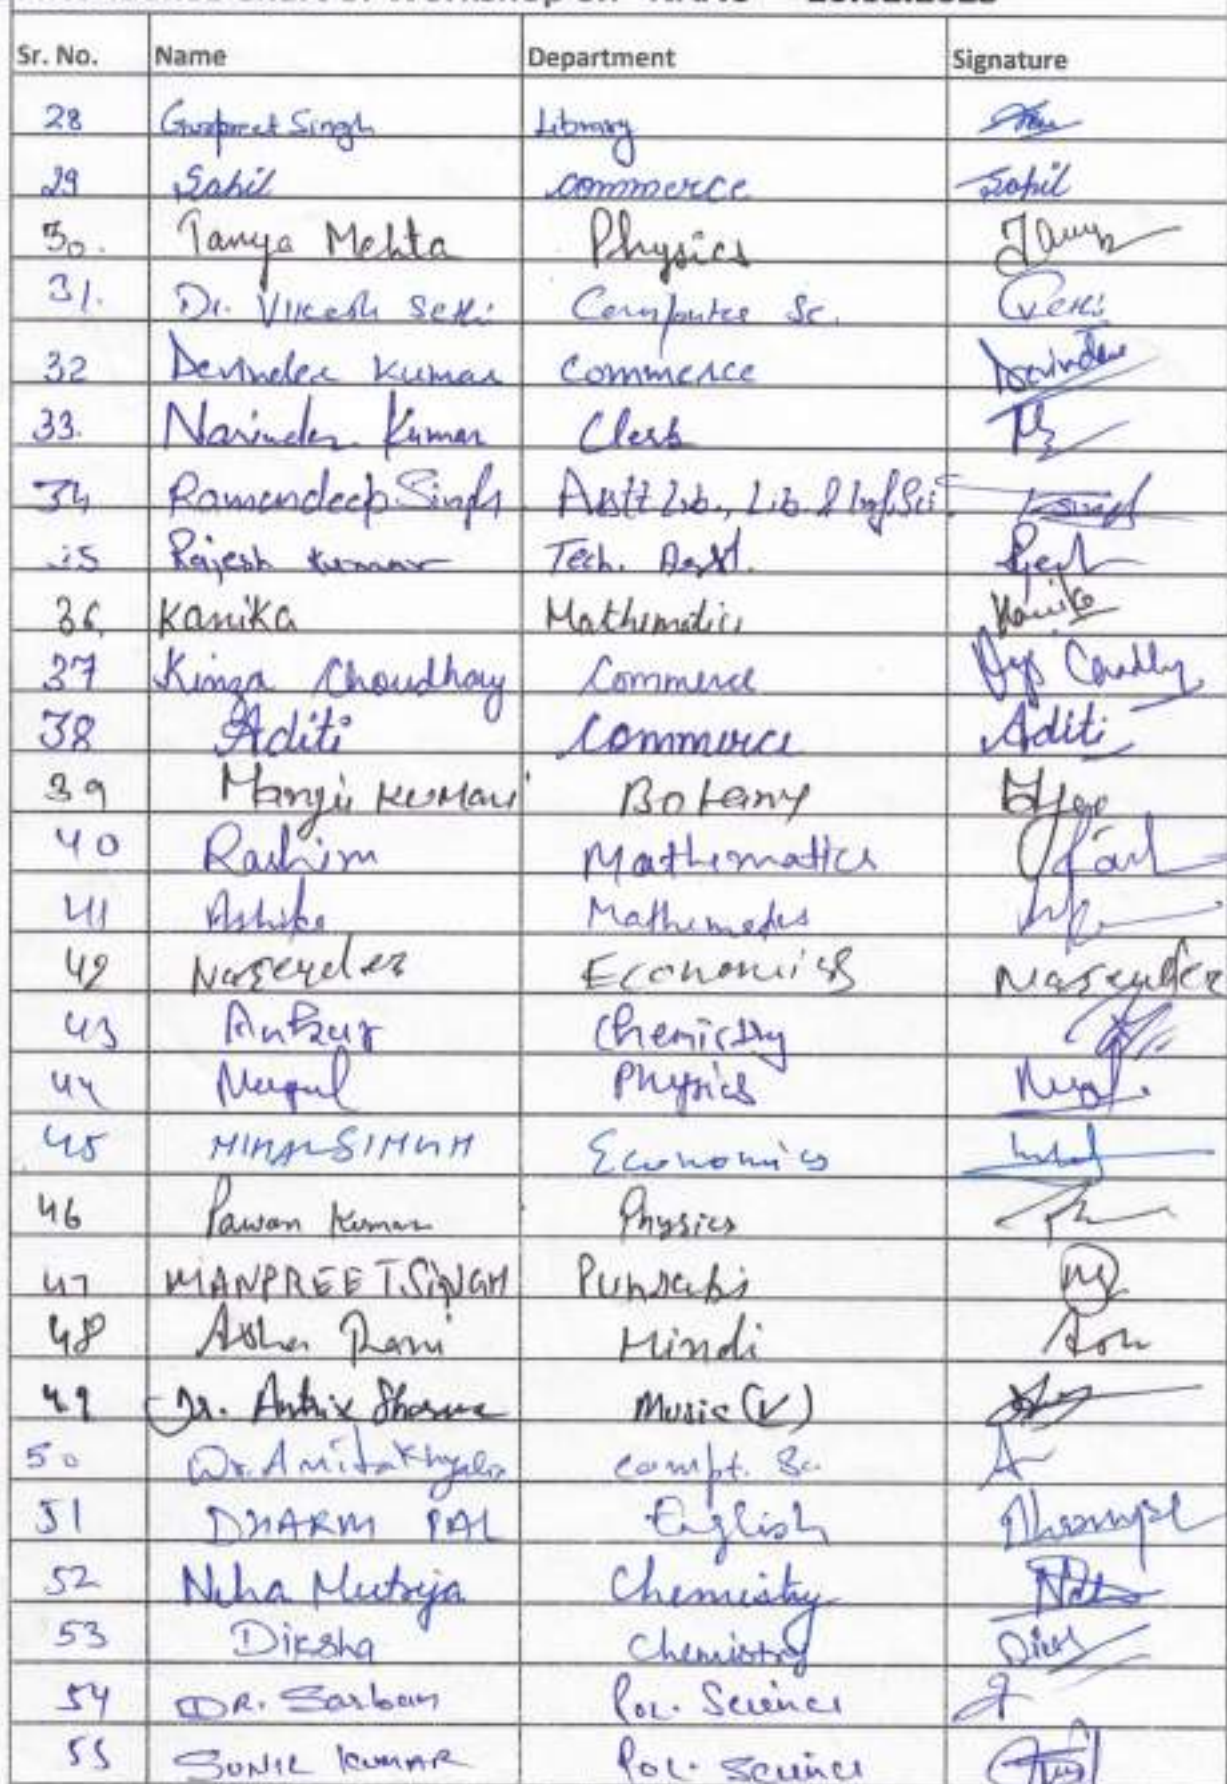 Sr. No. Name Department Signature
28 Gurpreet Singh Library
29 Sahil commerce Sahil
30. Tanya Mehta Physics Tanya
31. Dr. Vikesh Sethi Computer Sc. Vsethi
32 Devinder Kumar Commerce Devinder
33. Narinder Kumar Clerk
34 Ramandeep Singh Asstt Lib., Lib. & Inf. Sci.
35 Rajesh Kumar Tech. Asst.
36. Kanika Mathematics Kanika
37 Kinza Choudhary Commerce
38 Aditi Commerce Aditi
39 Manju Kumari Botany
40 Rashim Mathematics
41 Ashika Mathematics
42 Narender Economics Narender
43 Ankur Chemistry
44 Nupul Physics
45 SINGH Economics
46 Pawan Kumar Physics
47 MANPREET SINGH Punjabi
48 Asha Rani Hindi
49 Dr. Antrix Sharma Music (V)
50 Dr. Anita Compt. Sc.
51 DHARM PAL English Dharmpal
52 Neha Mutreja Chemistry Neha
53 Diksha Chemistry
54 DR. Sarban Pol. Science
55 SUNIL KUMAR Pol. Science